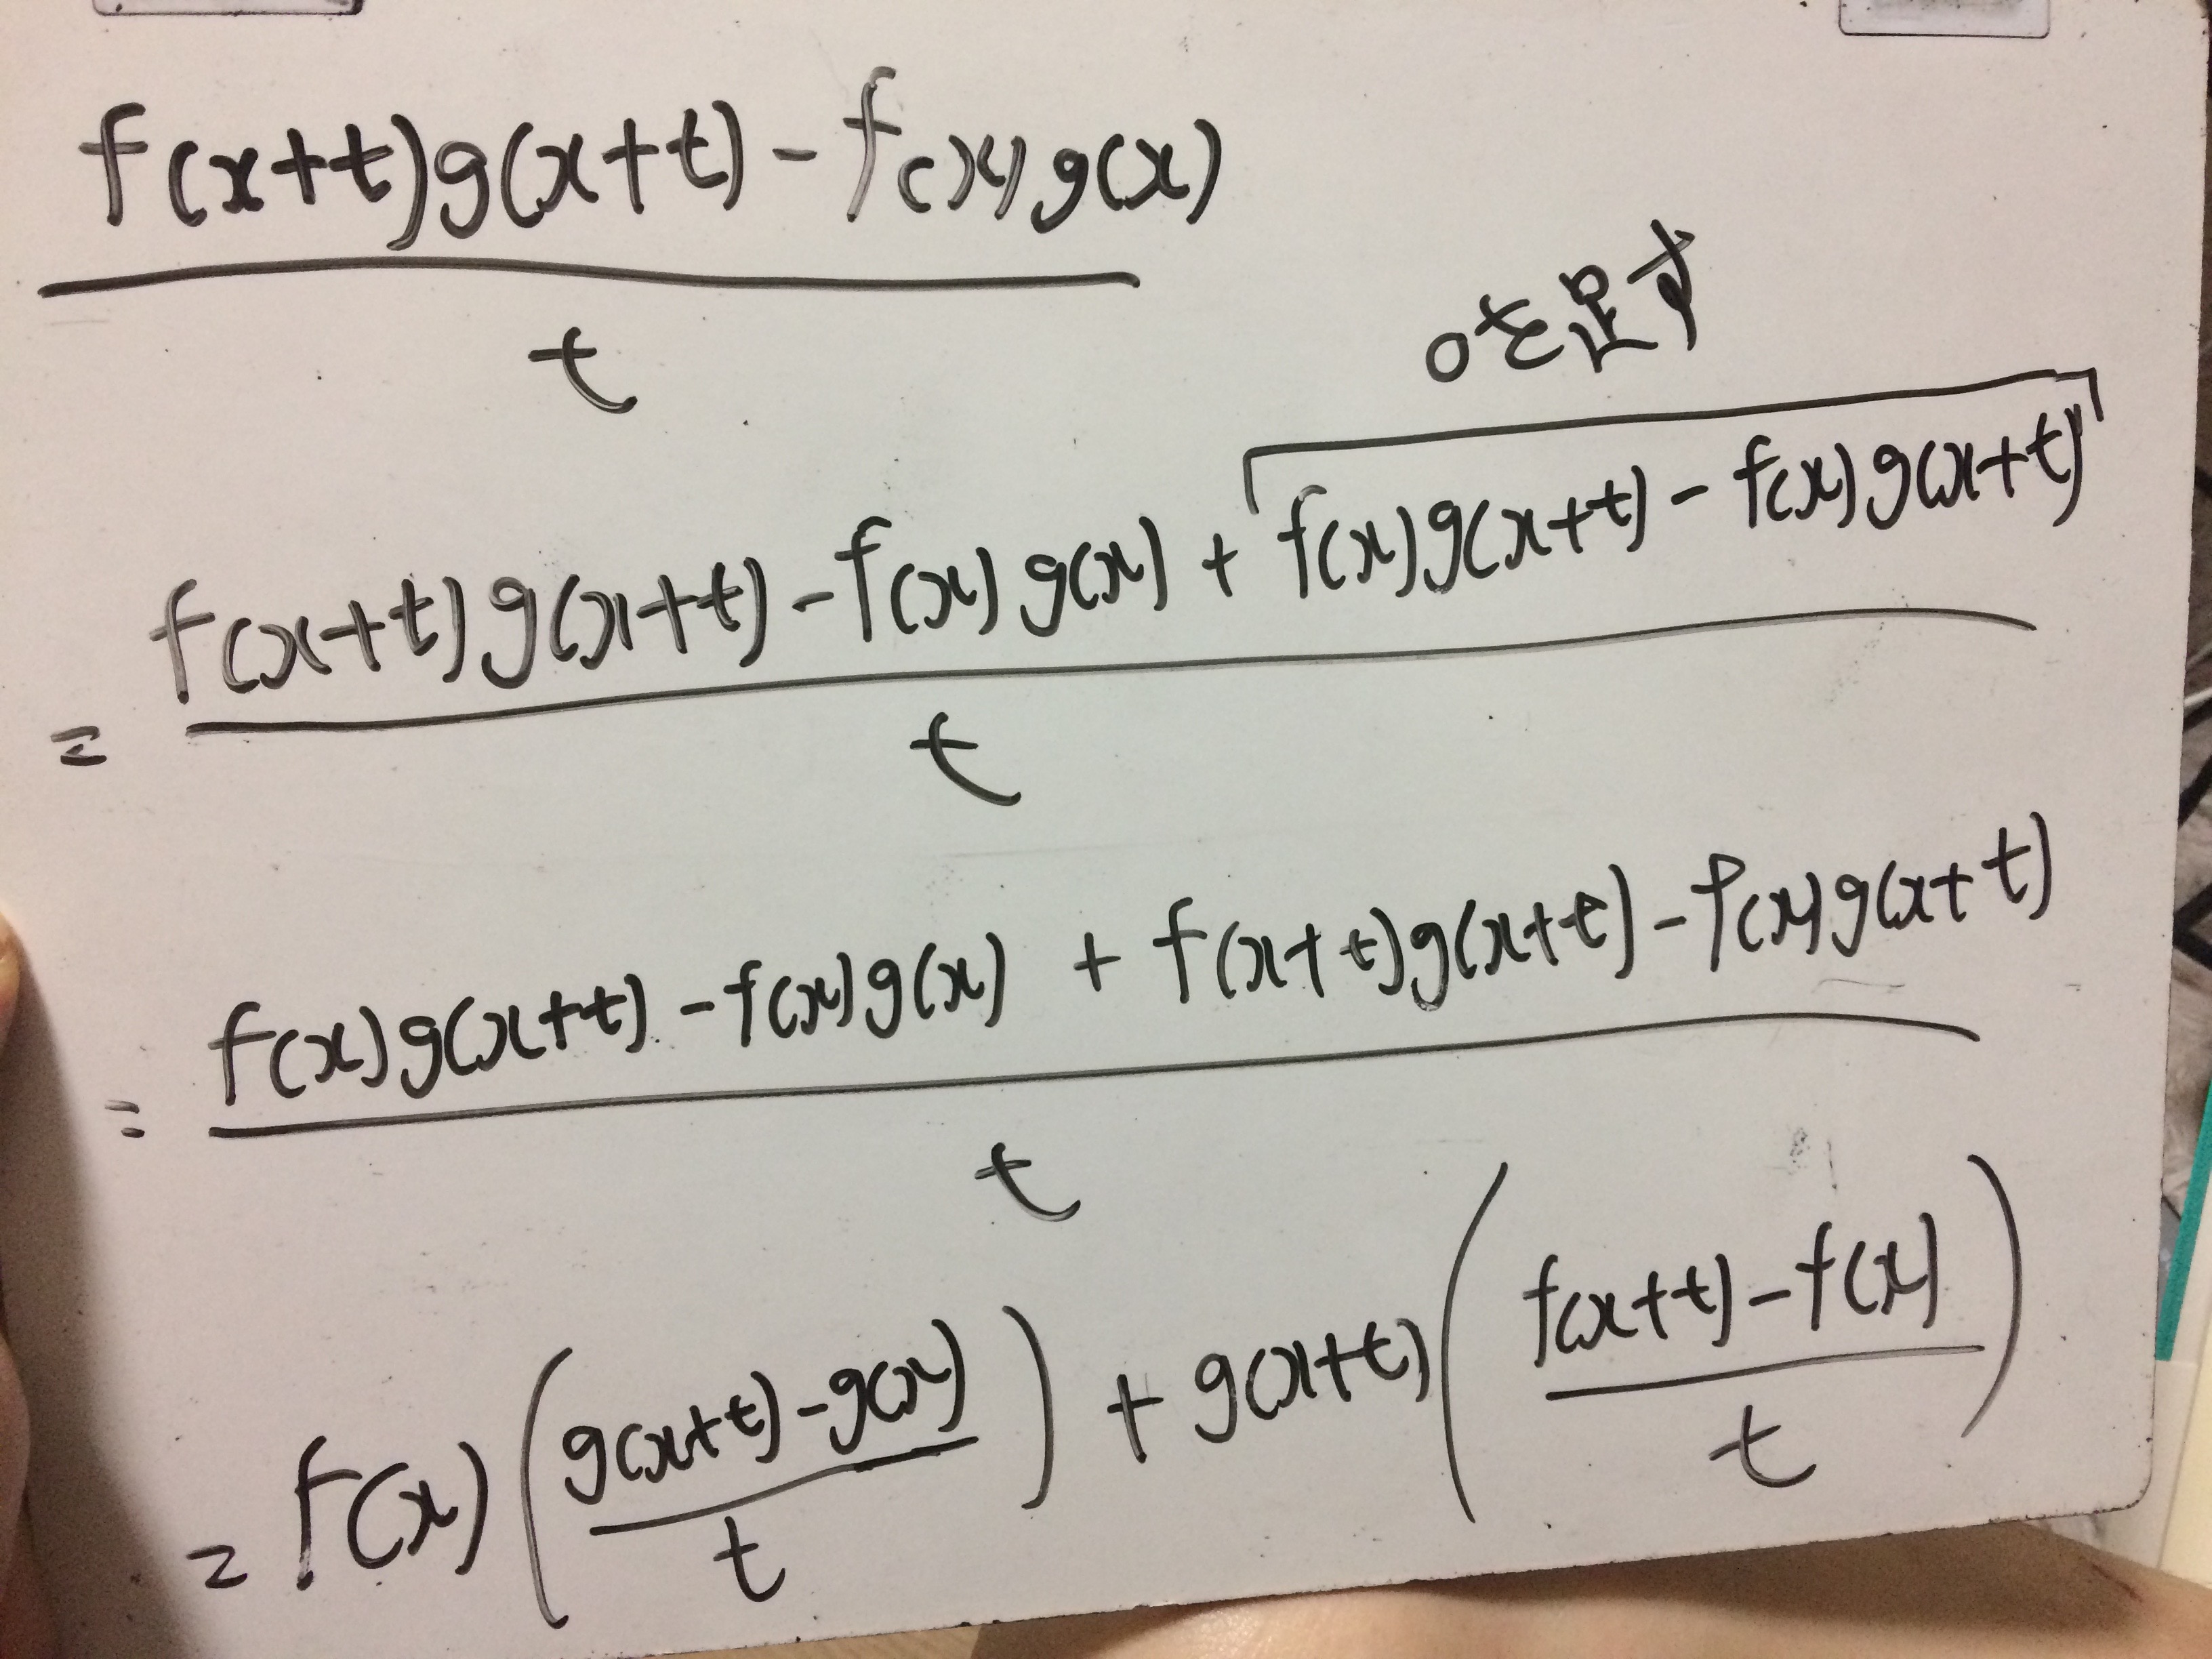 f(x+t)g(x+t)-f(x)g(x)
t
0を足す
= f(x+t)g(x+t)-f(x)g(x)+f(x)g(x+t)-f(x)g(x+t)
t
= f(x)g(x+t)-f(x)g(x)+f(x+t)g(x+t)-f(x)g(x+t)
t
= f(x)(g(x+t)-g(x)/t)+g(x+t)(f(x+t)-f(x)/t)